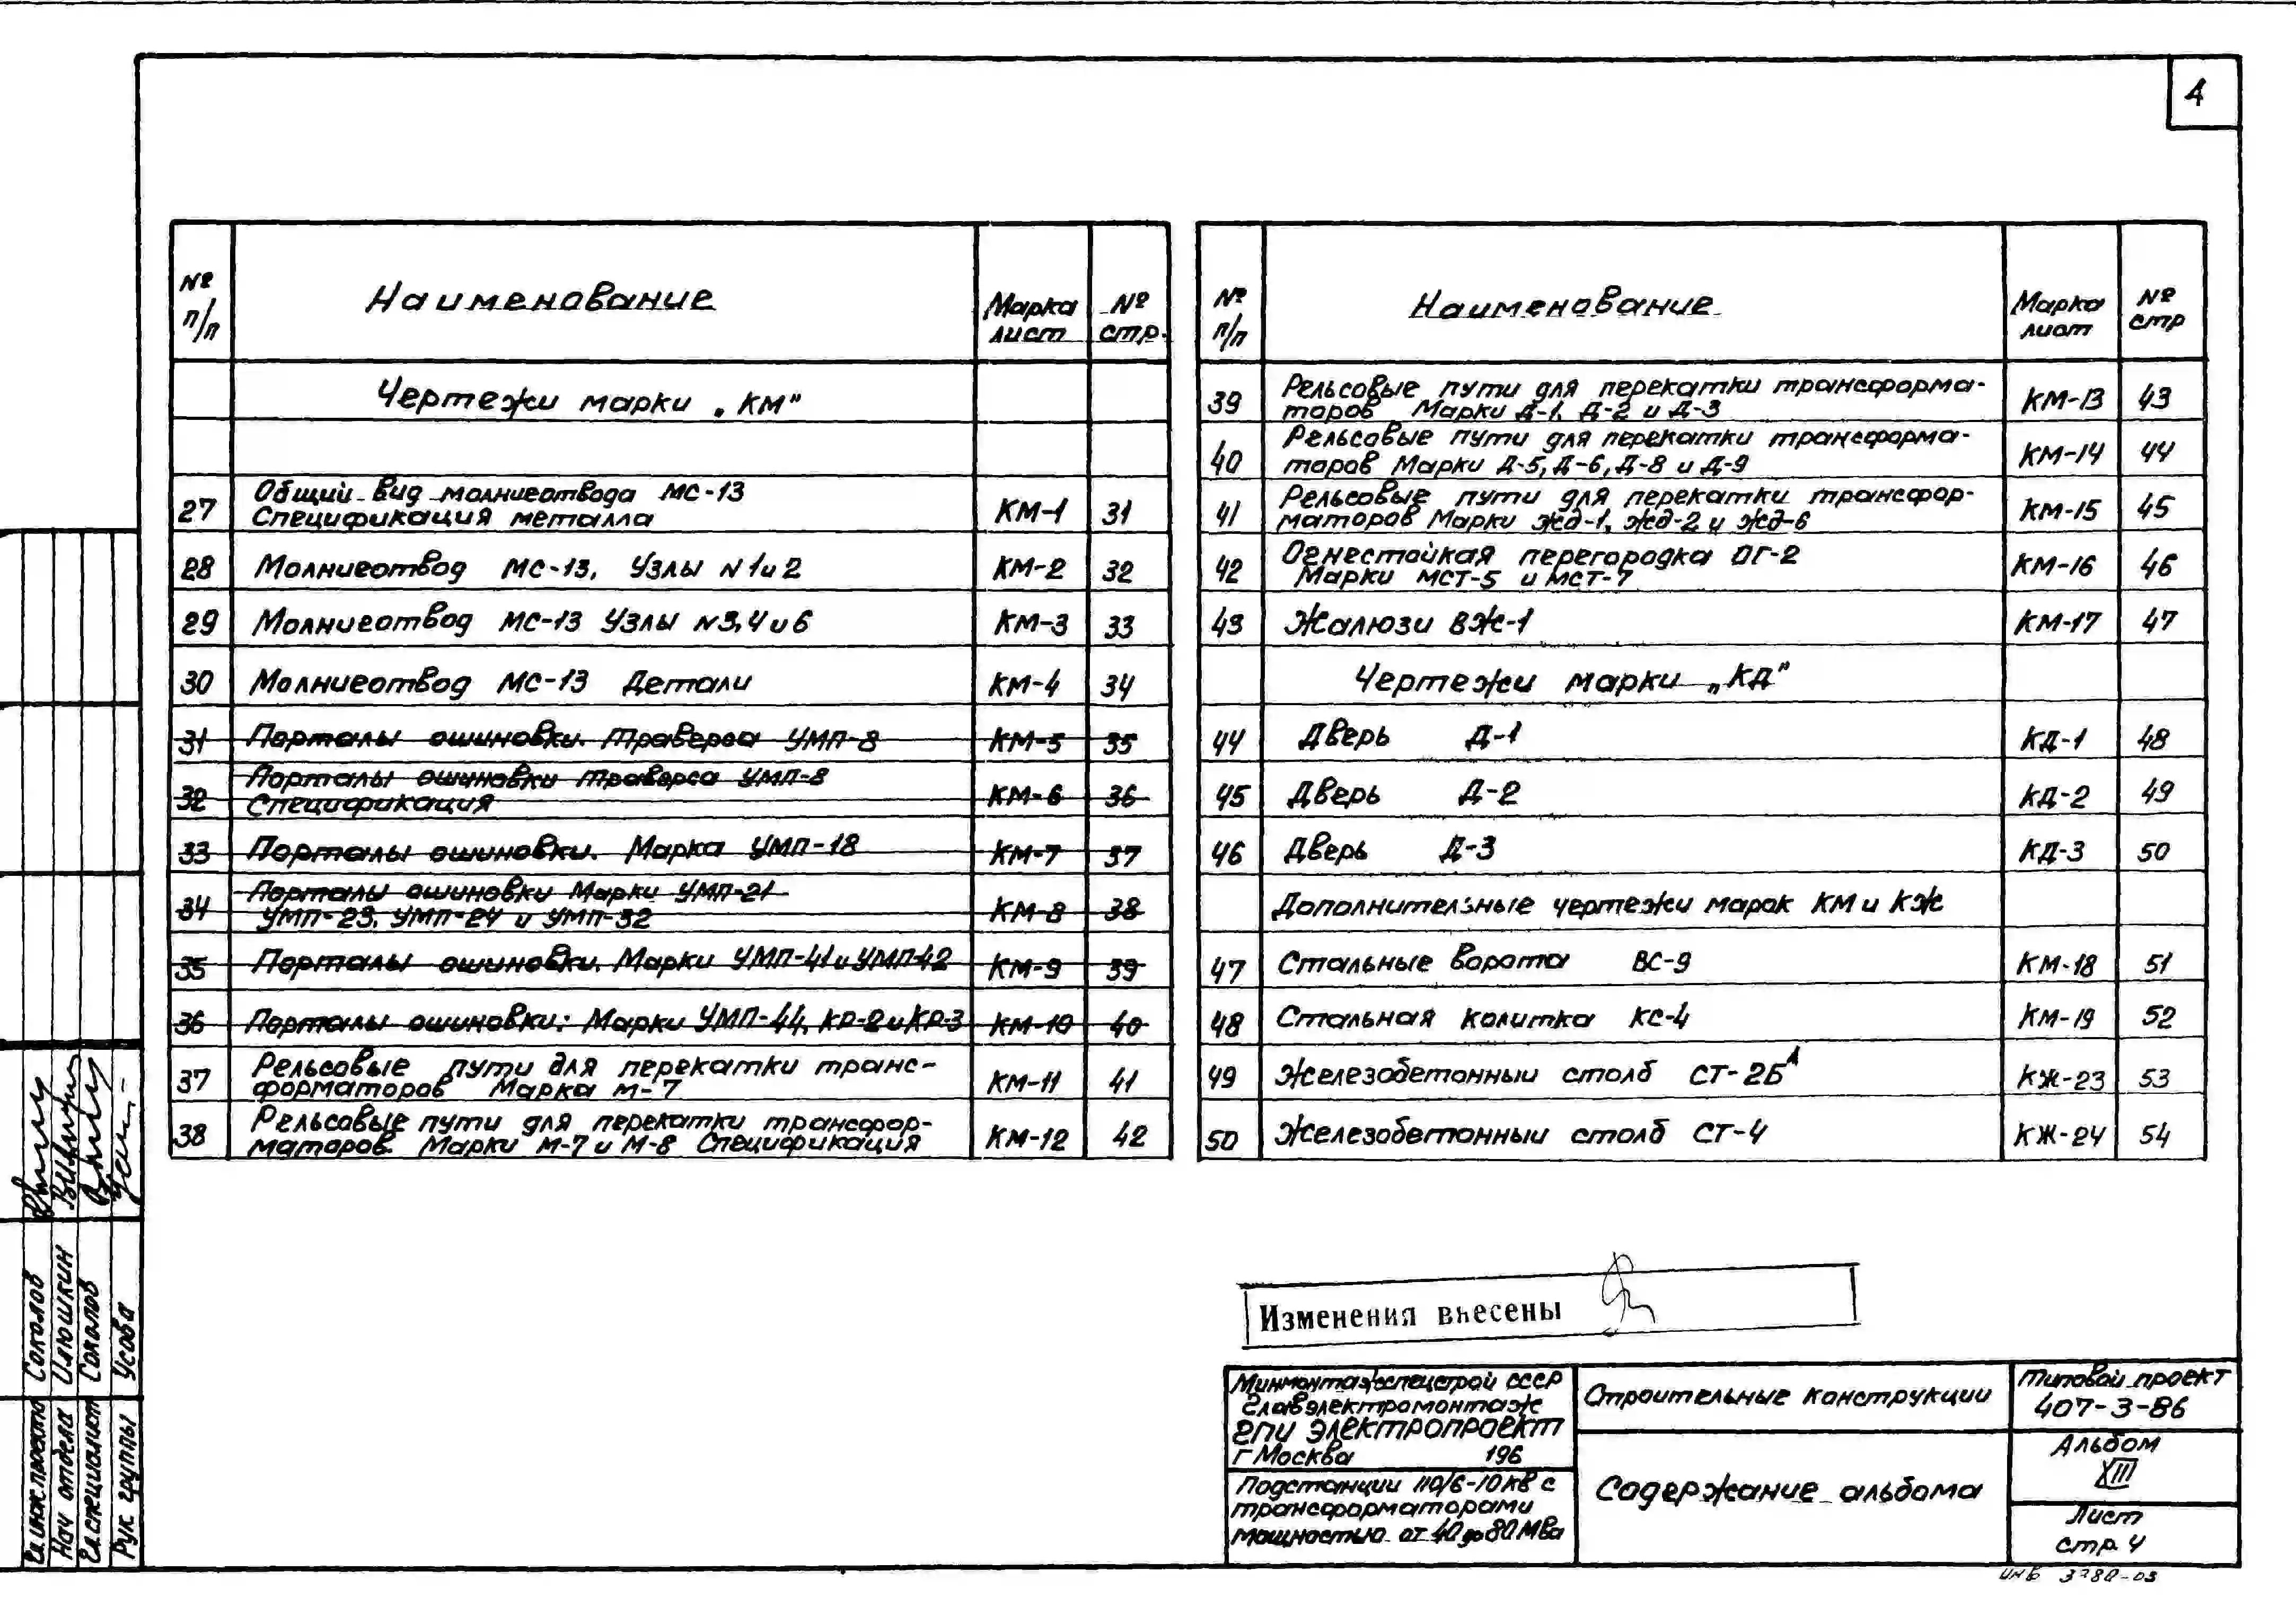 4
№ п/п Наименование Марка лист № стр.
Чертежи марки „КМ"
27 Общий вид молниеотвода МС-13 Спецификация металла КМ-1 31
28 Молниеотвод МС-13, Узлы N 1 и 2 КМ-2 32
29 Молниеотвод МС-13 Узлы N 3, 4 и 6 КМ-3 33
30 Молниеотвод МС-13 Детали КМ-4 34
31 Порталы ошиновки. Траверса УМП-8 КМ-5 35
32 Порталы ошиновки траверса УМП-8 Спецификация КМ-6 36
33 Порталы ошиновки. Марка УМП-18 КМ-7 37
34 Порталы ошиновки Марки УМП-21 УМП-23, УМП-24 и УМП-32 КМ-8 38
35 Порталы ошиновки. Марки УМП-41 и УМП-42 КМ-9 39
36 Порталы ошиновки: Марки УМП-44, КР-2 и КР-3 КМ-10 40
37 Рельсовые пути для перекатки транс-
форматоров Марка М-7 КМ-11 41
38 Рельсовые пути для перекатки трансфор-
маторов. Марки М-7 и М-8 Спецификация КМ-12 42
№ п/п Наименование Марка лист № стр
39 Рельсовые пути для перекатки трансформа-
торов Марки Д-1, Д-2 и Д-3 КМ-13 43
40 Рельсовые пути для перекатки трансформа-
торов Марки Д-5, Д-6, Д-8 и Д-9 КМ-14 44
41 Рельсовые пути для перекатки трансфор-
маторов Марки ЖД-1, ЖД-2 и ЖД-6 КМ-15 45
42 Огнестойкая перегородка ОГ-2
Марки МСТ-5 и МСТ-7 КМ-16 46
43 Жалюзи ВЖ-1 КМ-17 47
Чертежи марки „КД"
44 Дверь Д-1 КД-1 48
45 Дверь Д-2 КД-2 49
46 Дверь Д-3 КД-3 50
Дополнительные чертежи марок КМ и КЖ
47 Стальные ворота ВС-9 КМ-18 51
48 Стальная калитка КС-4 КМ-19 52
49 Железобетонный столб СТ-2БА КЖ-23 53
50 Железобетонный столб СТ-4 КЖ-24 54
Изменения внесены
Минмонтажспецстрой СССР
Главэлектромонтаж
ГПИ ЭЛЕКТРОПРОЕКТ
г Москва 196
Подстанции 110/6-10кв с
трансформаторами
мощностью от 40 до 80 Мва
Строительные конструкции
Содержание альбома
Типовой проект
407-3-86
Альбом
XIII
Лист
стр. 4
Гл.инж.проекта Соколов
Нач отдела Илюшкин
Гл.специалист Соколов
Рук группы Усова